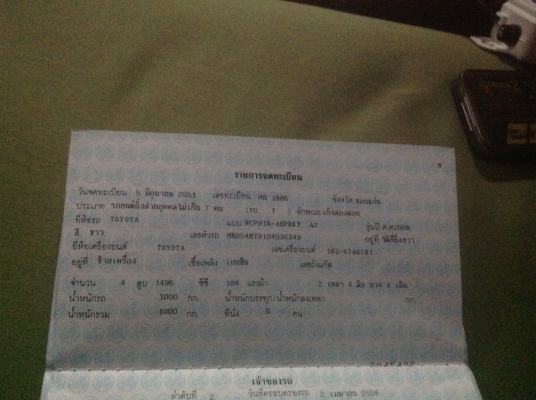 รายการจดทะเบียน
วันจดทะเบียน 5 มิถุนายน 2551 เลขทะเบียน 1886 จังหวัด ขอนแก่น
ประเภท รถยนต์นั่งส่วนบุคคลไม่เกิน 7 คน (รย. 1 ) ลักษณะ เก๋งสองตอน
ยี่ห้อรถ TOYOTA แบบ รุ่นปี ค.ศ.2008
สี ขาว เลขตัวรถ อยู่ที่
ยี่ห้อเครื่องยนต์ TOYOTA เลขเครื่องยนต์
อยู่ที่ เชื้อเพลิง เบนซิน เลขถังแก๊ส
จำนวน 4 สูบ 1496 ซีซี 109 แรงม้า 2 เพลา 4 ล้อ ยาง 4 เส้น
น้ำหนักรถ 1000 กก. น้ำหนักบรรทุก/น้ำหนักลงเพลา กก.
น้ำหนักรวม 1000 กก. ที่นั่ง คน
เจ้าของรถ
ลำดับที่ 2 วันที่ครอบครองรถ 2 เมษายน 2556